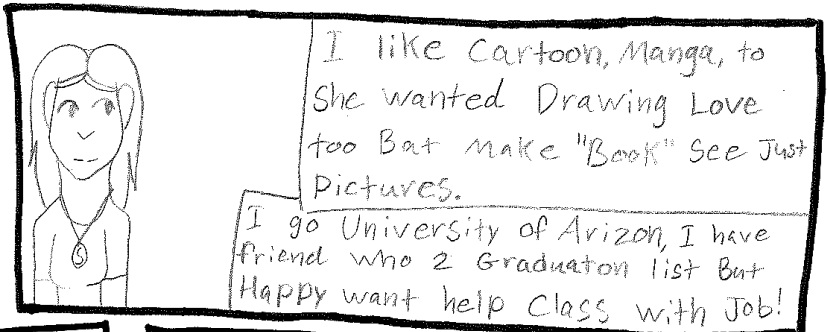 I like Cartoon, Manga, to
She wanted Drawing Love
too Bat Make "Book" See Just
Pictures.
I go University of Arizon, I have
friend who 2 Graduaton list But
Happy want help Class with Job!
S